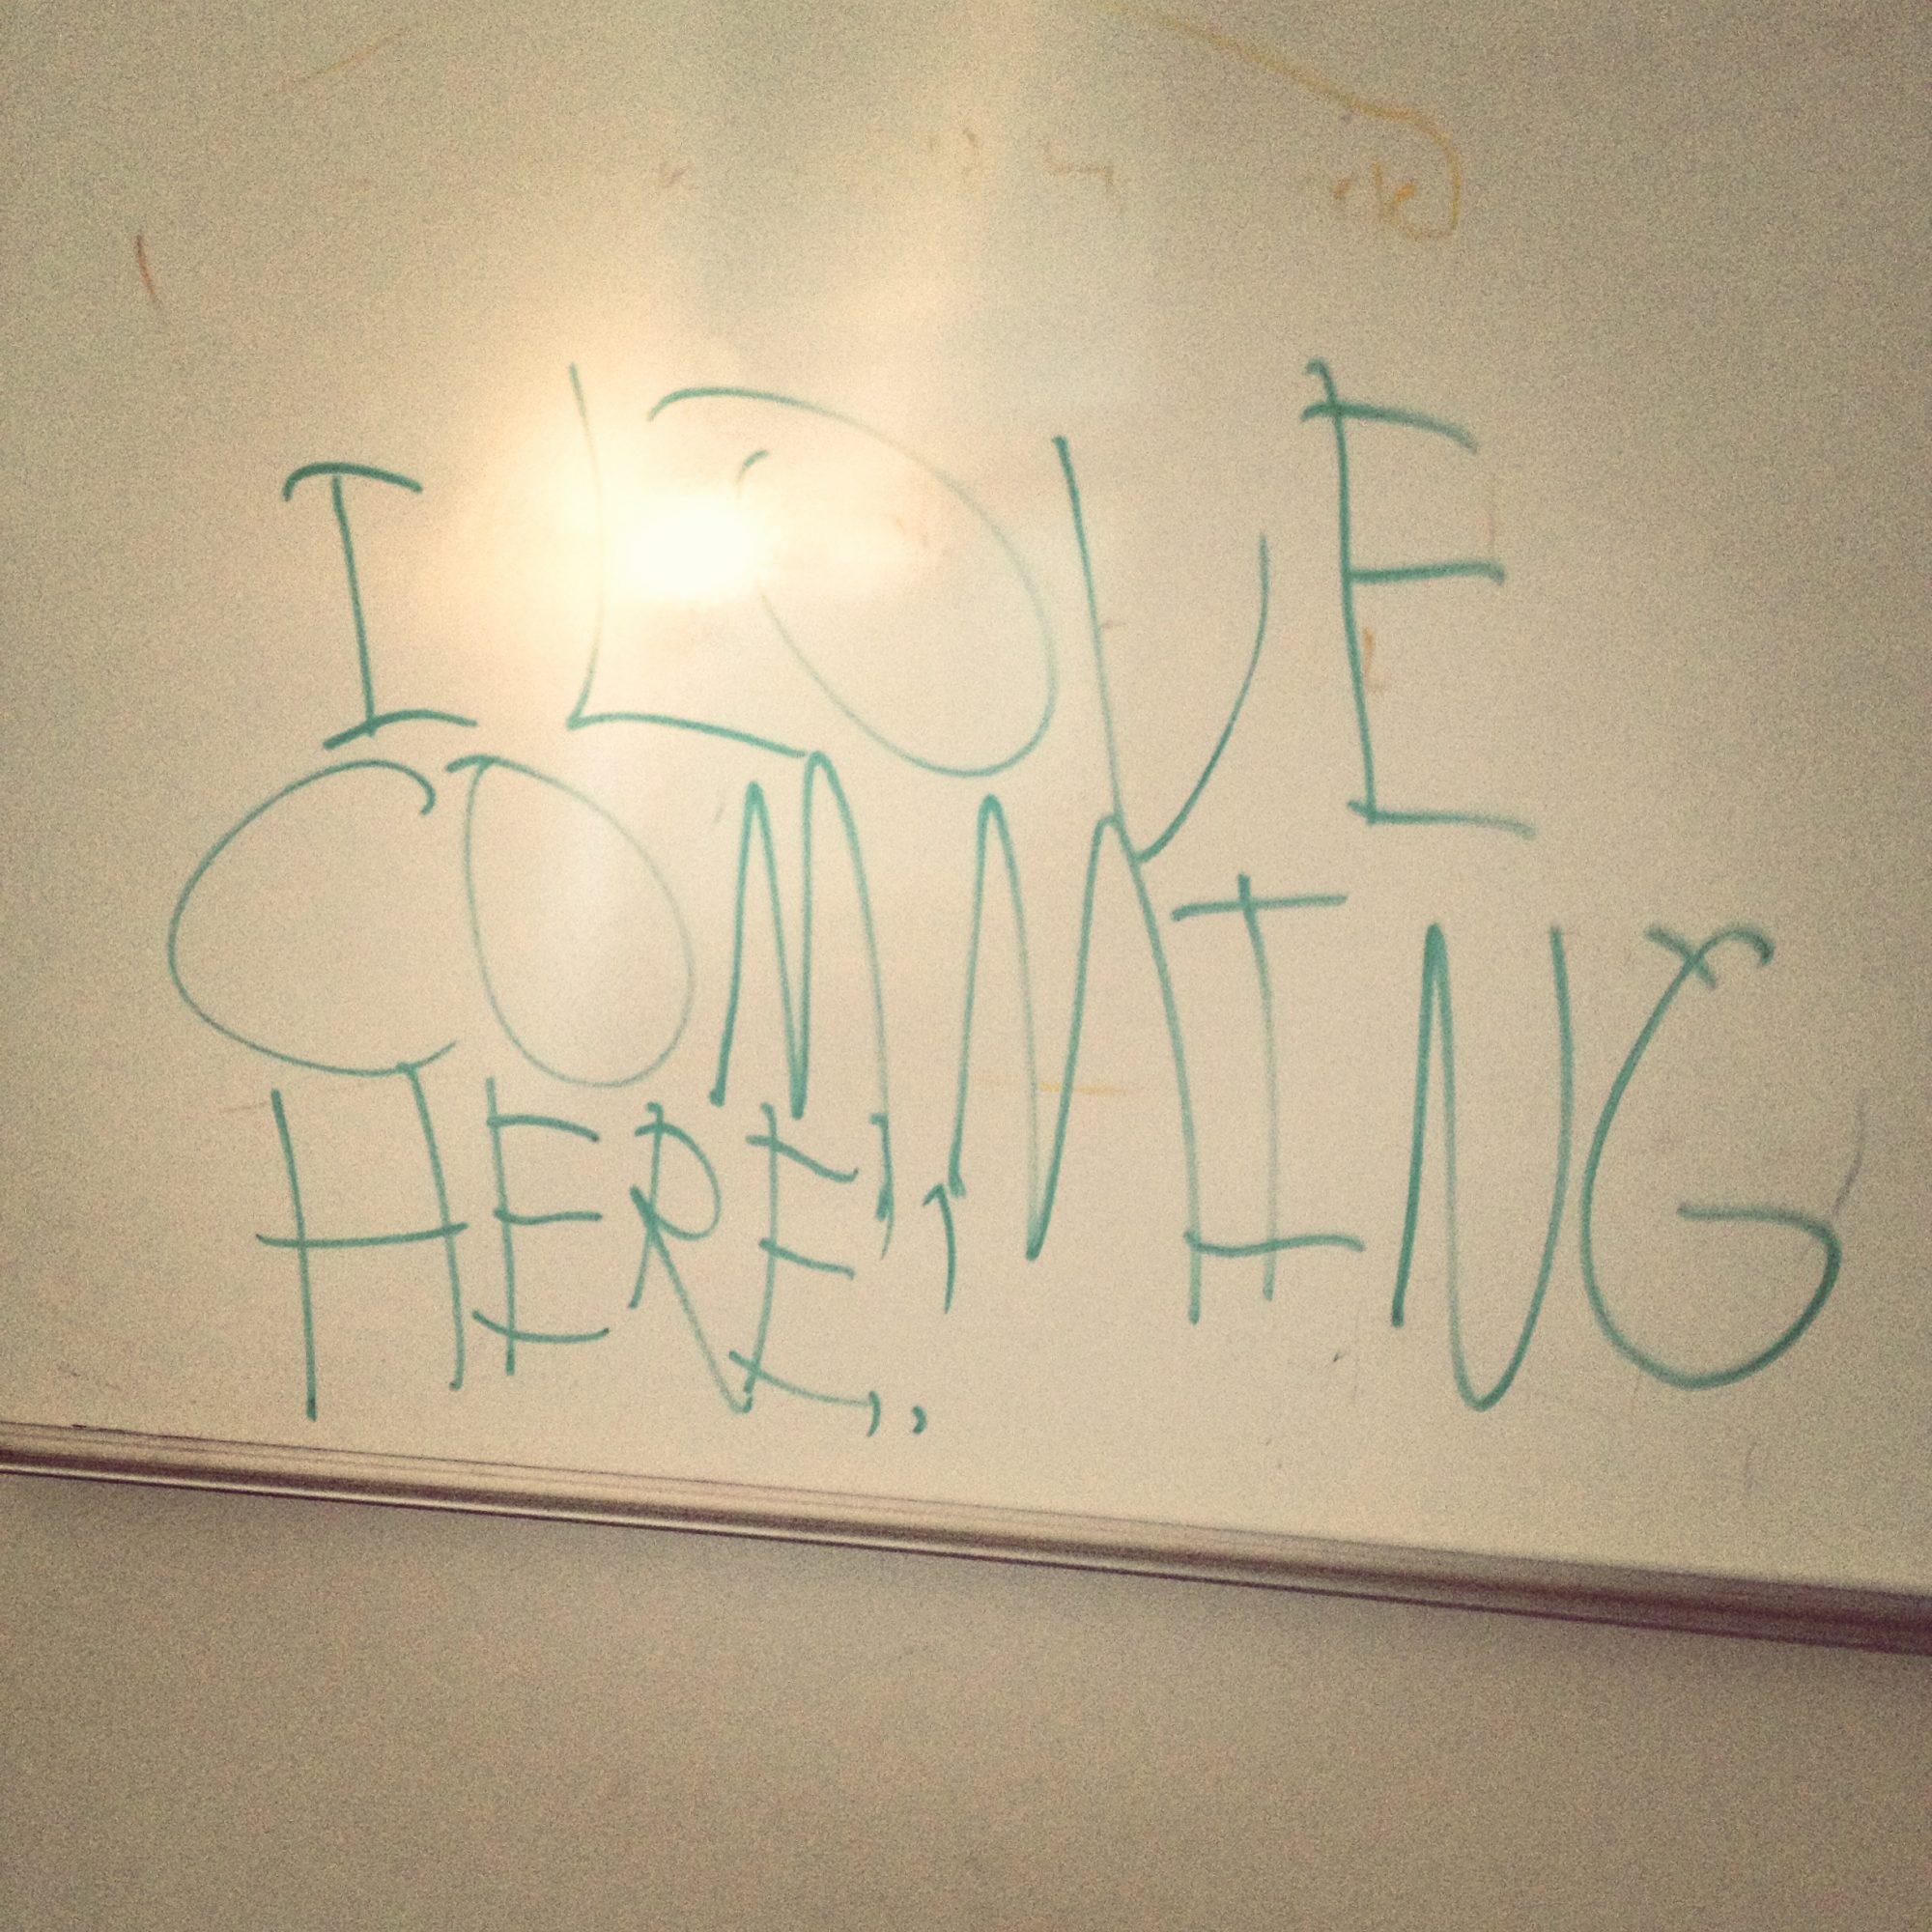 I LOVE
COMMING
HERE!!